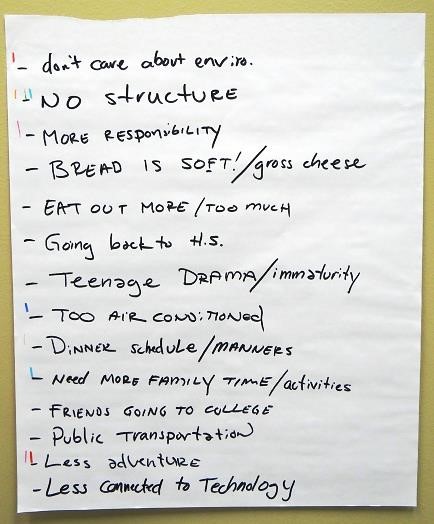 - don't care about enviro.
- NO structure
- MORE RESPONSIBILITY
- BREAD IS SOFT!/gross cheese
- EAT OUT MORE/TOO MUCH
- Going back to H.S.
- Teenage DRAMA/immaturity
- TOO AIR CONDITIONED
- DINNER schedule/MANNERS
- Need MORE FAMILY TIME/activities
- FRIENDS GOING TO COLLEGE
- Public Transportation
- Less adventure
- Less connected to Technology